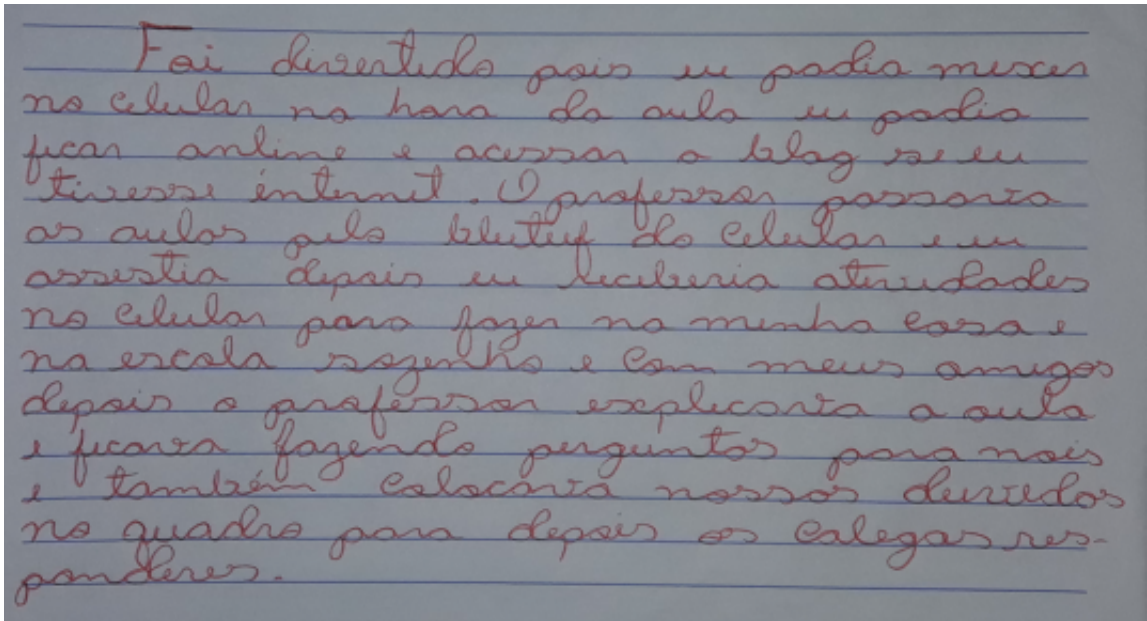 Foi divertido pois eu podia mexer
no celular na hora da aula eu podia
ficar online e acessar o blog se eu
tivesse internet. O professor passaria
as aulas pelo blutuf do celular e eu
assistia depois eu receberia atividades
no celular para fazer na minha casa e
na escola sozinho e com meus amigos
depois o professor explicava a aula
e ficava fazendo perguntas para nois
e também colocava nossas duvidas
no quadro para depois os colegas res-
ponderes.